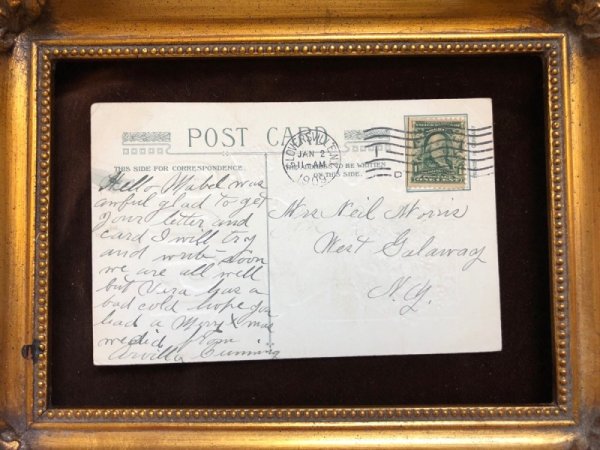 POST CARD
GLOVERSVILLE, N.Y.
JAN 2
11-AM
1909
THIS SIDE FOR CORRESPONDENCE.
TO BE WRITTEN
ON THIS SIDE.
Hello Mabel was
awful glad to get
your letter and
card I will try
and write soon
we are all well
but Vera has a
bad cold hope you
had a Mery Xmas
we did from
Arvilla Cunning
Mrs Neil Morris
West Galaway
N.Y.